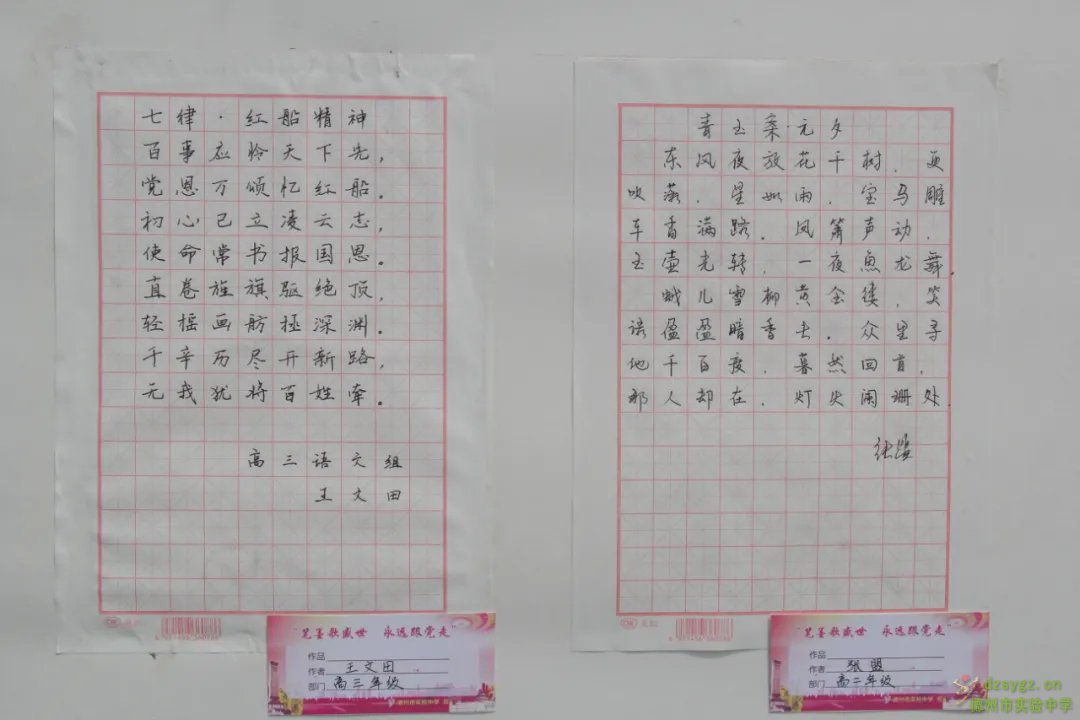 七律·红船精神
百事应怜天下先，
党恩万颂忆红船。
初心已立凌云志，
使命常书报国恩。
直卷旌旗驱绝顶，
轻摇画舫极深渊。
千辛历尽开新路，
无我犹将百姓牵。
高三语文组
王文田
"笔墨歌盛世 永远跟党走"
作品
作者 王文田
部门 高三年级
青玉案·元夕
东风夜放花千树，更
吹落，星如雨。宝马雕
车香满路。凤箫声动，
玉壶光转，一夜鱼龙舞。
蛾儿雪柳黄金缕，笑
语盈盈暗香去。众里寻
他千百度，暮然回首，
那人却在，灯火阑珊处。
张盟
"笔墨歌盛世 永远跟党走"
作品
作者 张盟
部门 高二年级
dzsygz.cn
德州市实验中学